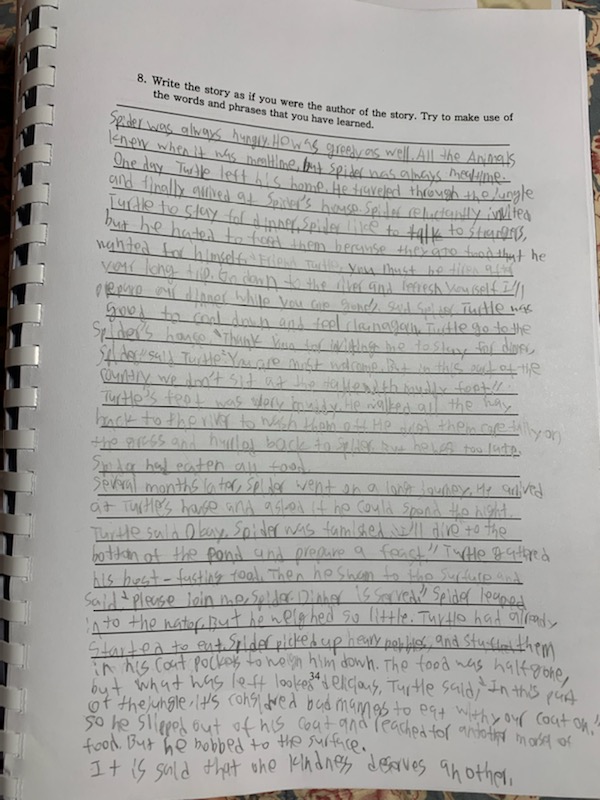 8. Write the story as if you were the author of the story. Try to make use of
the words and phrases that you have learned.
Spider was always hungry. He was greedy as well. All the Animals
knew when it was mealtime, but Spider was always mealtime.
One day Turtle left his home. He traveled through the jungle
and finally arrived at Spider's house. Spider reluctantly invited
Turtle to stay for dinner, Spider like to talk to strangers,
but he hated to feed them because they ate food that he
wanted for himself. "Friend Turtle, you must be tired after
your long trip. Go down to the river and refresh yourself. I'll
prepare our dinner while you are gone", said Spider. Turtle was
good to cool down and feel clean again. Turtle go to the
Spider's house. "Thank you for inviting me to stay for dinner,
Spider" said Turtle. "You are most welcome. But in this part of the
country we don't sit at the table with muddy feet."
Turtle's feet was very muddy. He walked all the way
back to the river to wash them off. He dried them carefully on
the grass and hurried back to Spider. But he was too late.
Spider had eaten all food.
Several months later, Spider went on a long journey. He arrived
at Turtle's house and asked if he could spend the night.
Turtle said Okay. Spider was famished. "I'll dive to the
bottom of the pond and prepare a feast" Turtle gathered
his best-tasting food. Then he swam to the surface and
said "please join me, Spider. Dinner is served." Spider leaped
into the water. But he weighed so little. Turtle had already
started to eat. Spider picked up heavy pebbles, and stuffed them
in his coat pockets to weigh him down. The food was half gone,
but what was left looked delicious, Turtle said, "In this part
34
of the jungle, it's considred bad manners to eat with your coat on."
So he slipped out of his coat and reached for another morsel of
food. But he bobbed to the surface.
It is said that one kindness deserves another.